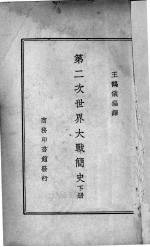 王鶴儀編譯
第二次世界大戰簡史下册
商務印書館發行